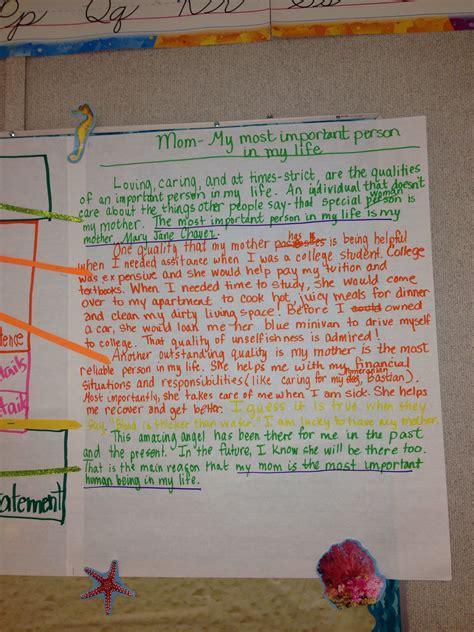 Pp Qq Rr Ss
Mom- My most important person
in my life
Loving, caring, and at times-strict, are the qualities
of an important person in my life. An individual that doesn't
care about the things other people say-that special woman is
my mother. The most important person in my life is my
mother, Mary Jane Chavez.
One quality that my mother has is being helpful
when I needed assitance when I was a college student. College
was expensive and she would help pay my tuition and
textbooks. When I needed time to study, she would come
over to my apartment to cook hot, juicy meals for dinner
and clean my dirty living space! Before I owned
a car, she would loan me her blue minivan to drive myself
to college. That quality of unselfishness is admired!
Another outstanding quality is my mother is the most
reliable person in my life. She helps me with my financial
situations and responsibilities (like caring for my pomeranian dog, bastian).
Most importantly, she takes care of me when I am sick. She helps
me recover and get better. I guess it is true when they
say, "Blood is thicker than water." I am lucky to have my mother.
This amazing angel has been there for me in the past
and the present. In the future, I know she will be there too.
That is the main reason that my mom is the most important
human being in my life.
tence
tails
tails
tatement